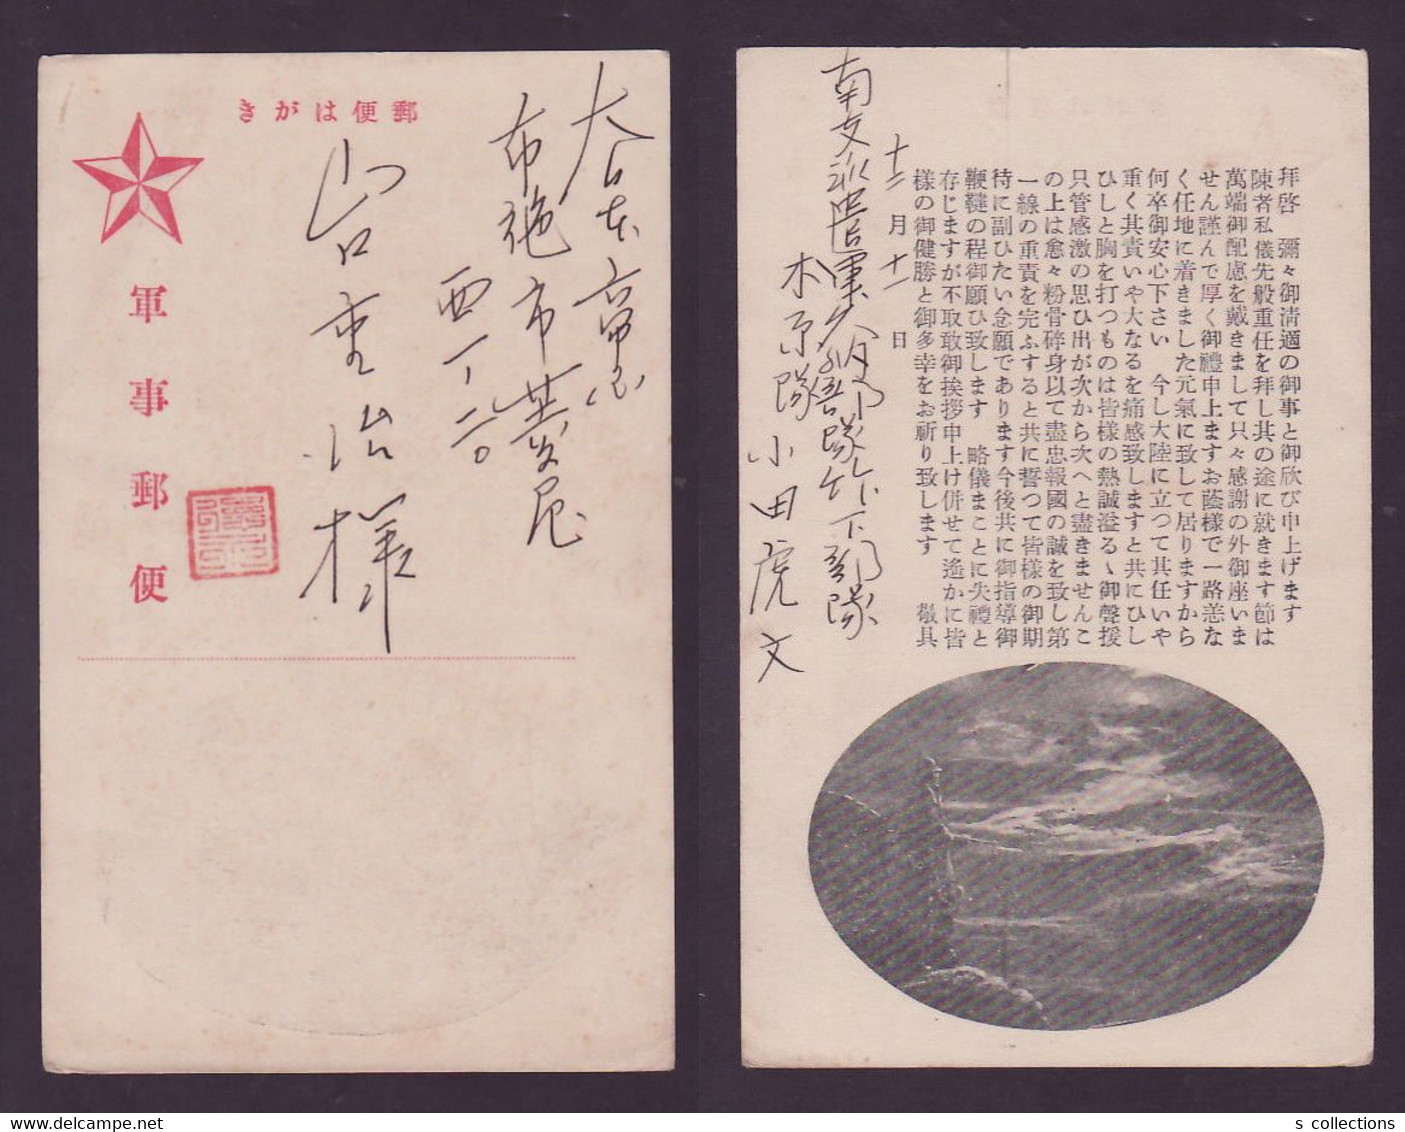 郵便はがき
軍事郵便
布施市菱屋
西一ノ二〇
山口重治様
拝啓 彌々御淸適の御事と御欣び申上げます
陳者私儀先般重任を拜し其の途に就きます節は
萬端御配慮を戴きまして只々感謝の外御座いま
せん謹んで厚く御禮申上ますお蔭樣で一路恙な
く任地に着きました元氣に致して居りますから
何卒御安心下さい 今し大陸に立つて其任いや
重く其責いや大なるを痛感致しますと共にひし
ひしと胸を打つものは皆樣の熱誠溢るゝ御聲援
只管感激の思ひ出が次から次へと盡きませんこ
の上は愈々粉骨碎身以て盡忠報國の誠を致し第
一線の重責を完ふすると共に誓つて皆樣の御期
待に副ひたい念願であります今後共に御指導御
鞭韃の程御願ひ致します 略儀まことに失禮と
存じますが不取敢御挨拶申上け併せて遙かに皆
樣の御健勝と御多幸をお祈り致します 敬具
十二月十二日
南支派遣軍久納部隊竹下部隊
木原隊 小田虎文
s collections